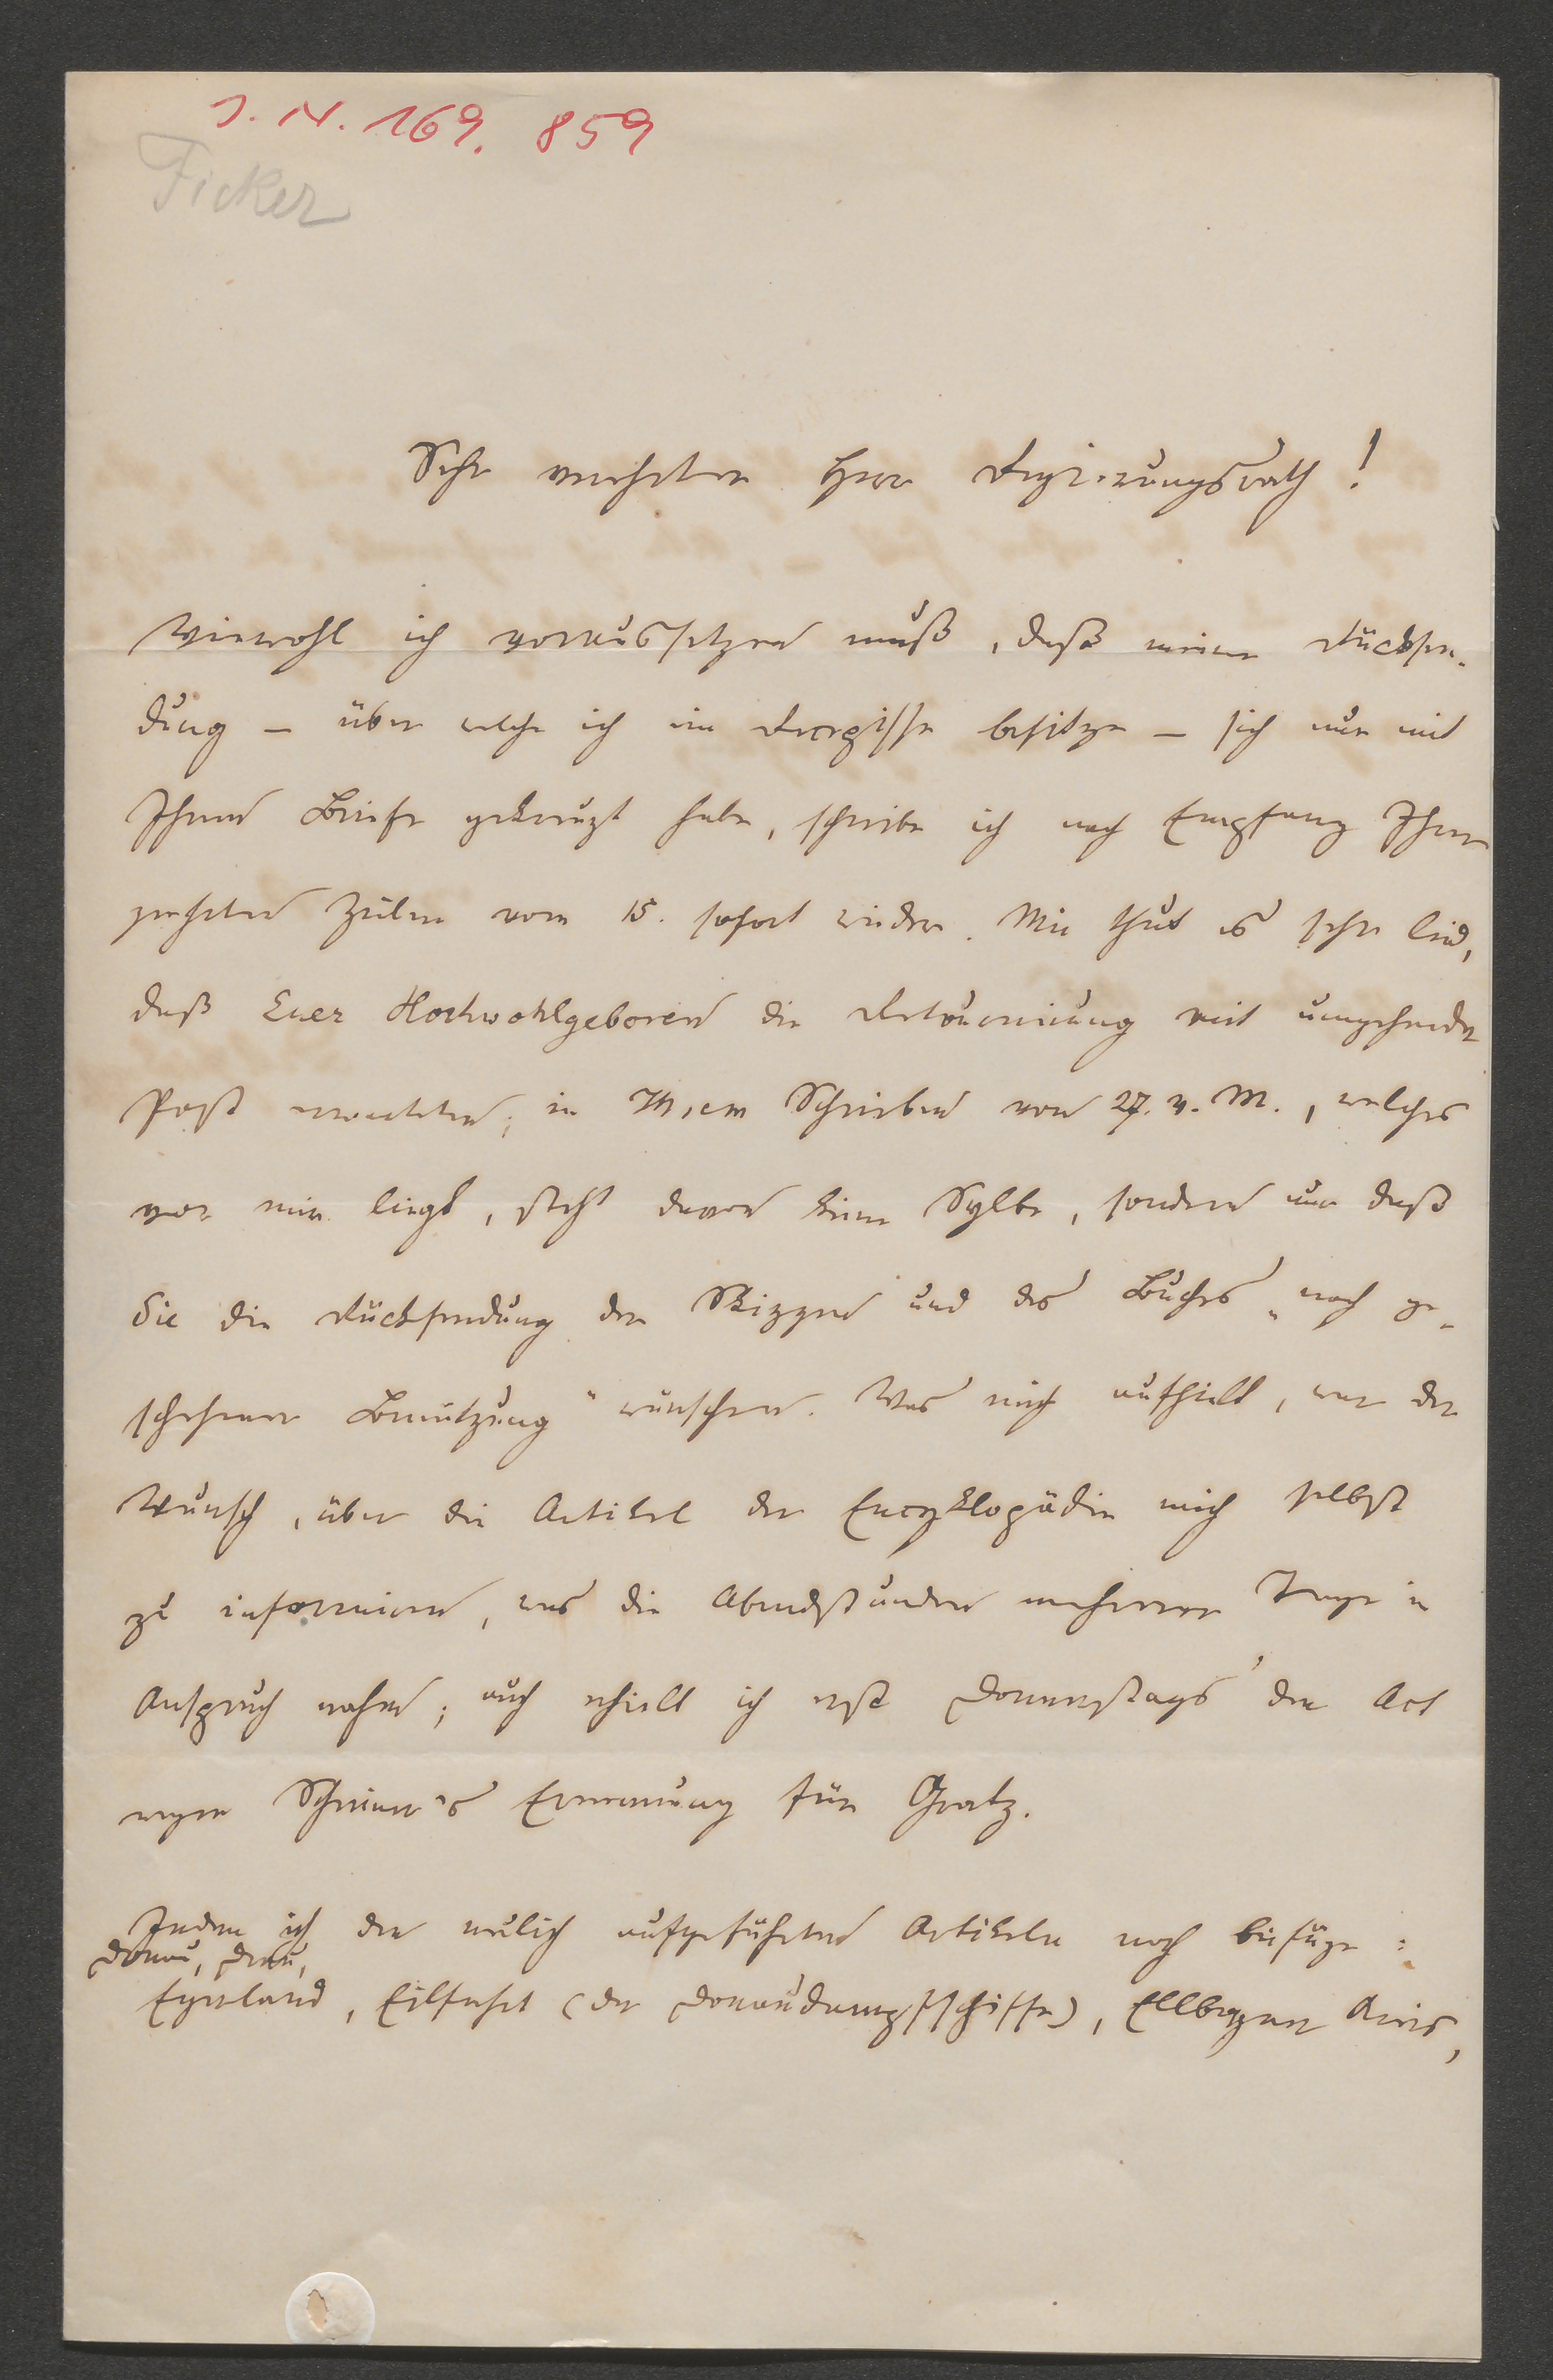 J. N. 169.859
Ficker
Sehr verehrter Herr Regierungsrath!
Wiewohl ich voraussetzen muß, daß meine Rücksen-
dung – über welche ich ein Recepisse besitze – sich nur mit
Ihrem Briefe gekreuzt habe, schreibe ich nach Empfang Ihrer
geehrten Zeilen vom 15. sofort wieder. Mir thut es sehr leid,
daß Euer Hochwohlgeboren die Retournirung mit umgehender
Post erwarteten; in Ihrem Schreiben vom 27. v. M., welches
vor mir liegt, steht davon keine Sylbe, sondern nur daß
Sie die Rücksendung der Skizzen und des Buches „nach ge-
schehener Benützung“ wünschen. Was mich aufhielt, war der
Wunsch, über die Artikel der Encyklopädie mich selbst
zu informiren, was die Abendstunden mehrerer Tage in
Anspruch nahm; auch erhielt ich erst Donnerstags den Act
wegen Ernennung für Gratz.
Indem ich den neulich aufgeführten Artikeln noch beifüge:
Donau, Drau,
Egerland, Eilfahrt (der Donaudampfschiffe), Ellbogner Kreis,